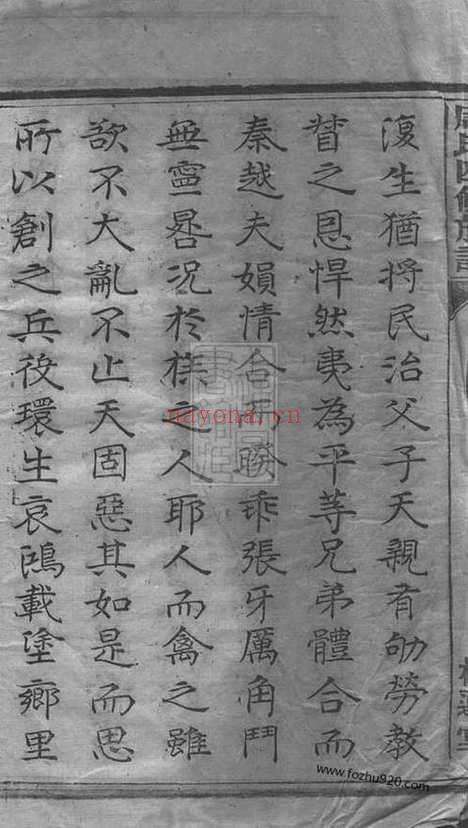 氏四修族譜
復生猶將民治父子天親有劬勞教
督之恩悍然夷為平等兄弟體合而
秦越夫媍情合而睽乖張牙厲角鬥
無寧晷況於族之人耶人而禽之雖
欲不大亂不止天固惡其如是而思
所以創之兵役環生哀鴻載塗鄉里
nayona.cn
www.fozhu920.com